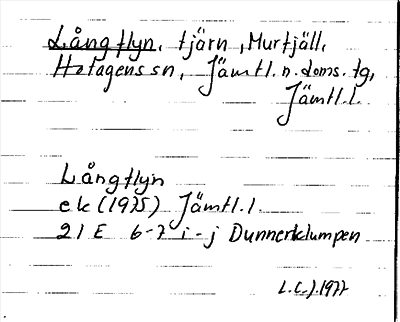 Långflyn, tjärn, Murfjäll,
Hotagens sn, Jämtl. n. doms. tg,
Jämtl. l.
Långflyn
ek (1975) Jämtl. l.
21 E 6-7 i-j Dunnerklumpen
L.C.J. 1977